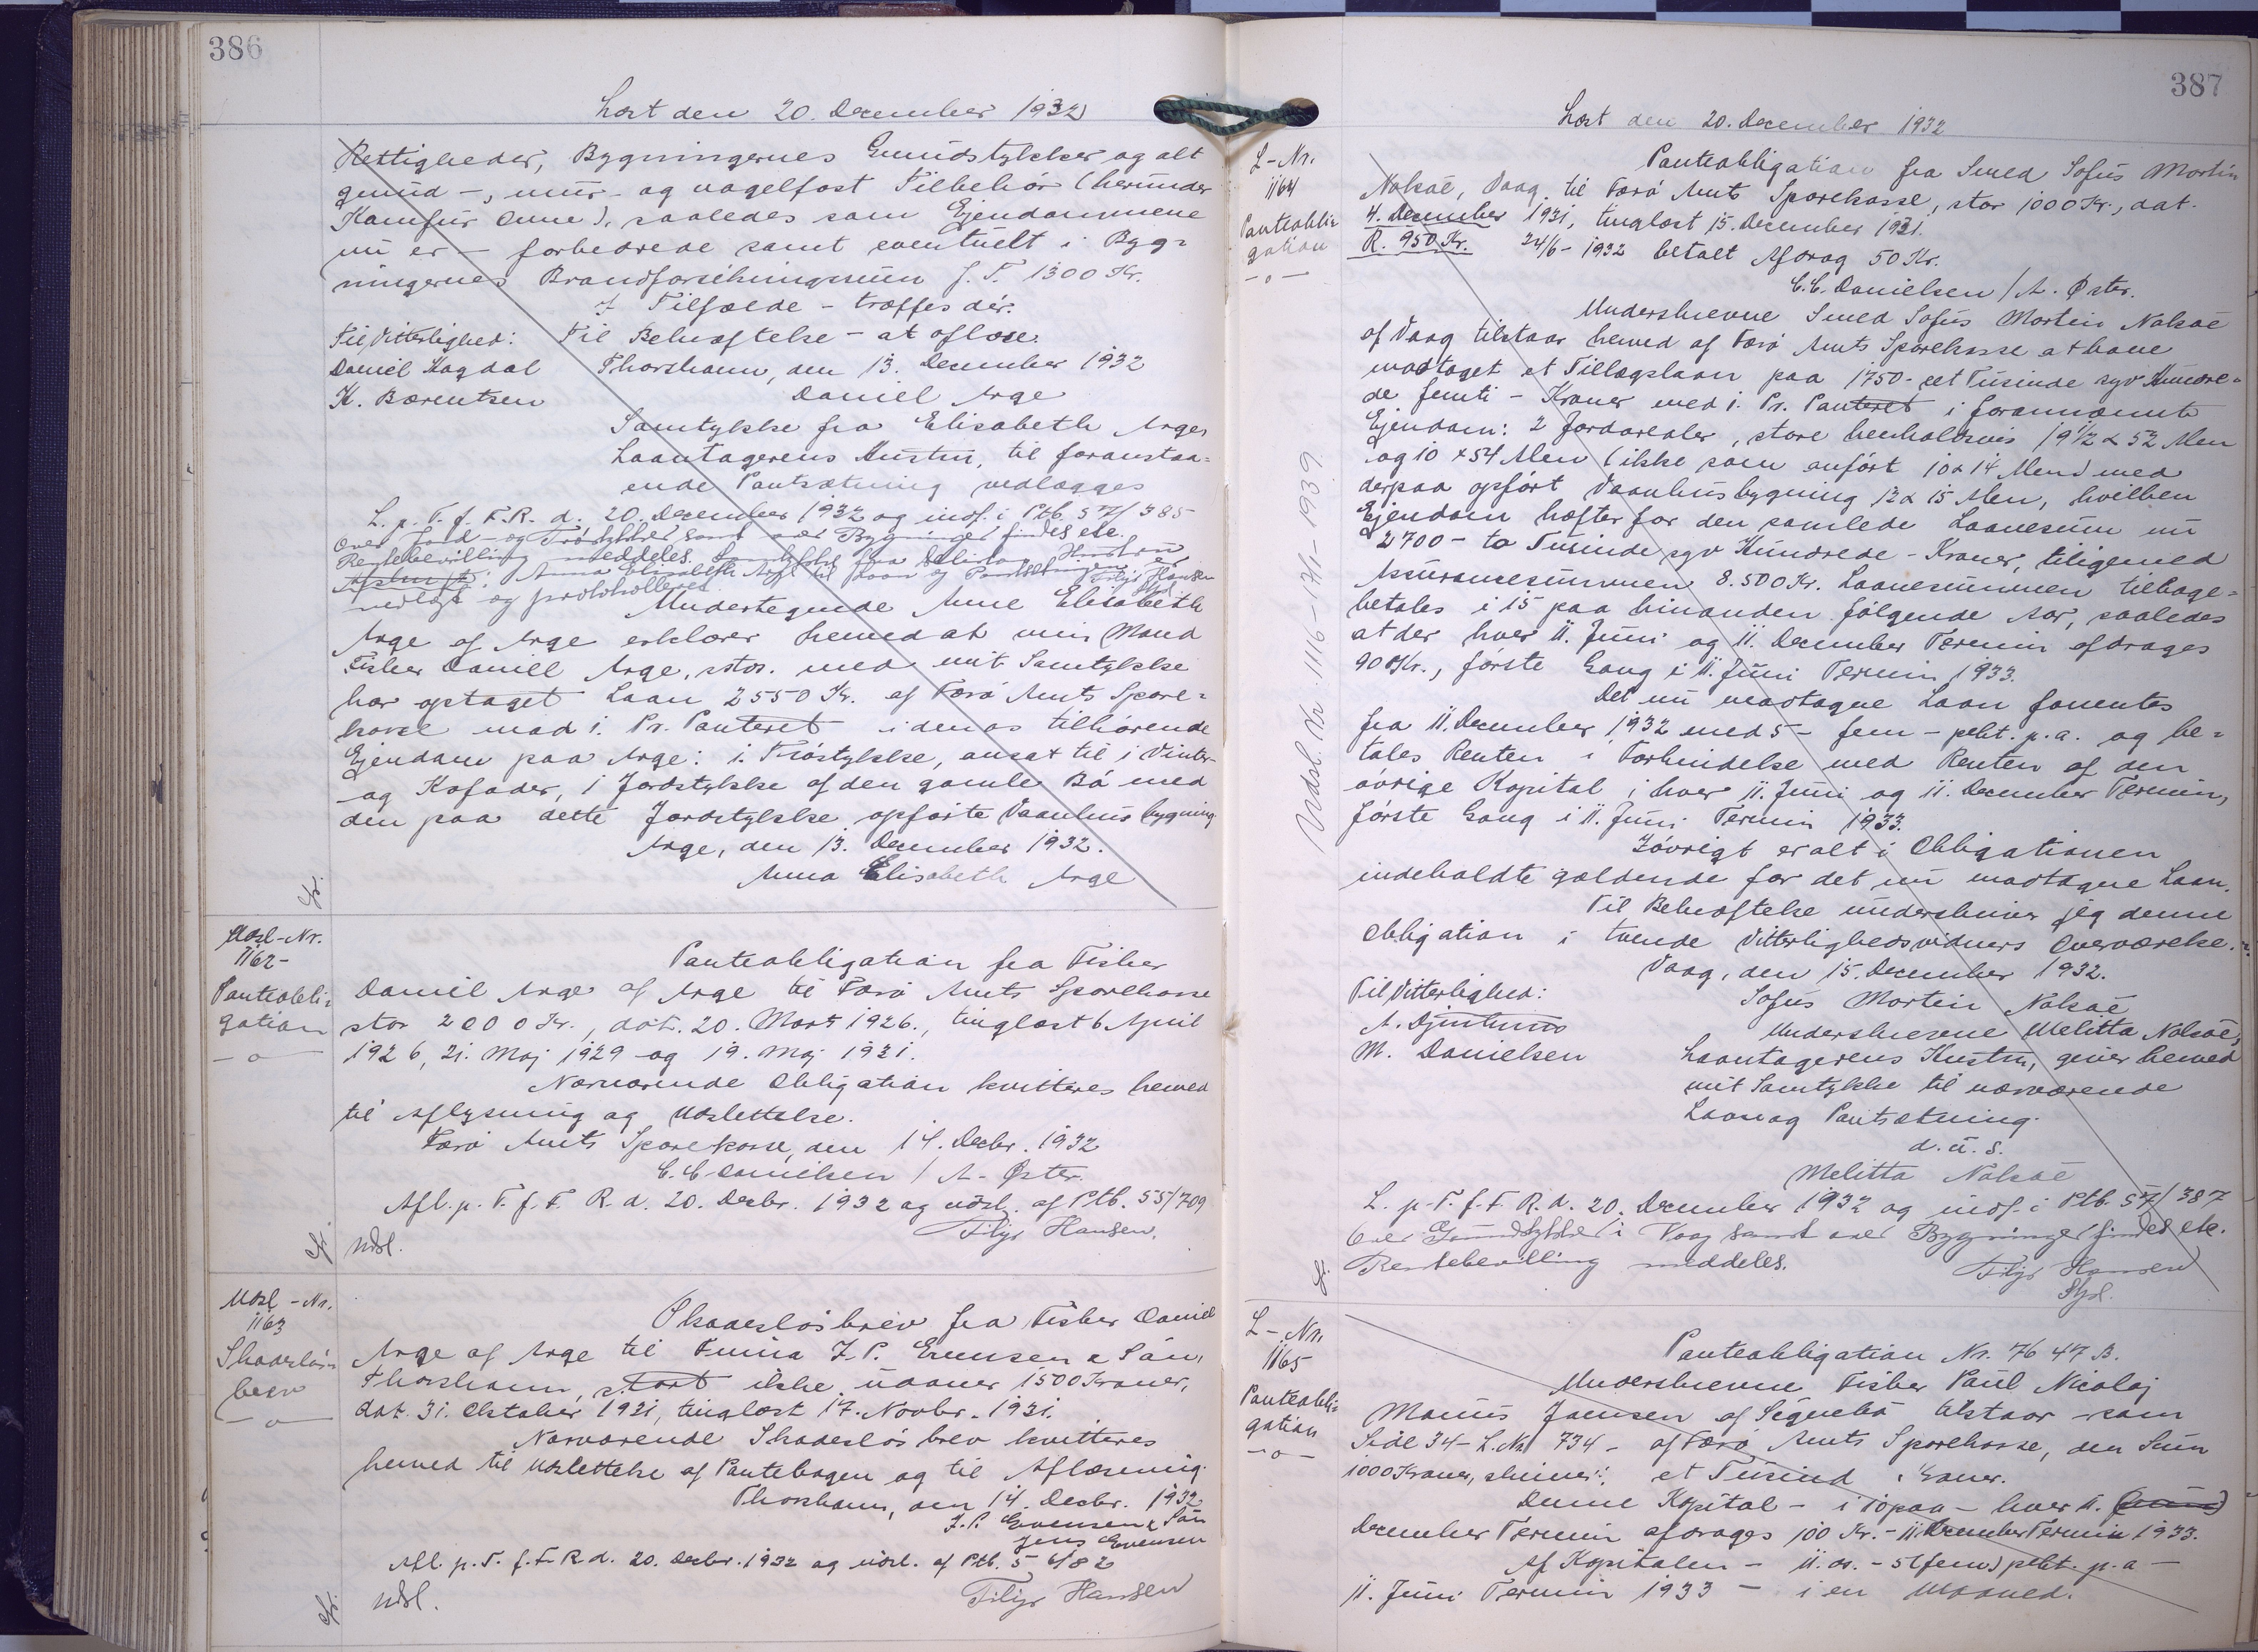 386
Læst den 20. December 1932
Rettigheder, Bygningernes Grundstykker og alt
grund-, mur- og nagelfast Tilbehör (herunder
Komfur Ovne), saaledes som Ejendommene
nu er - forbedrede samt eventuelt i Byg-
ningernes Brandforsikringssum f. T. 1300 Kr.
I Tilfælde - træffes dér.
Til Vitterlighed: Til Bekræftelse - at aflæse.
Daniel Kagdal Thorshavn, den 13. December 1932
K. Bærentsen Daniel Arge
Samtykke fra Elisabeth Arge,
Laantagerens Hustru, til foranstaa-
ende Pantsætning vedlægges
L. p. T. f. F. R. d. 20. December 1932 og indf. i Ptb. 57/385
Over Jord- og Tröstykker samt over Bygninger findes etc.
Rentebevilling meddeles. Samtykke fra Debitors Hustru
Anna Elisabeth Arge til Laan og Pantsætningen er
vedlagt og protokolleret. Filip Hansen
Undertegnede Anne Elisabeth
Arge af Arge erklærer herved at min Mand
Fisker Daniel Arge, sstds. med mit Samtykke
har optaget Laan 2550 Kr. af Færö Amts Spare-
kasse mod 1. Pr. Panteret i denas tilhörende
Ejendom paa Arge: 1 Tröstykke, ansat til 1 Vinter-
og Kofoder, 1 Jordstykke af den gamle Bö med
den paa dette Jordstykke opförte Vaanhusbygning.
Arge, den 13. December 1932.
Anna Elisabeth Arge
Udsl-Nr.
1162-
Panteobli-
gation
-o-
Panteobligation fra Fisker
Daniel Arge af Arge til Færö Amts Sparekasse
stor 2000 Kr., dat. 20. Marts 1926., tinglæst 6 April
1926, 21. Maj 1929 og 19. Maj 1931.
Nærværende Obligation kvitteres herved
til Aflysning og Udslettelse.
Færö Amts Sparekasse, den 14. Decbr. 1932
C. C. Danielsen / A. Öster.
Afl. p. T. f. F. R. d. 20. Decbr. 1932 og udsl. af Ptb. 55/709
Filip Hansen.
Udsl.
Udsl-Nr.
1163
Skadeslös-
brev
-o-
Skadeslösbrev fra Fisker Daniel
Arge af Arge til Firma J. P. Evensen & Sön,
Thorshavn, stort ikke udover 1500 Kroner,
dat. 31. Oktober 1931, tinglæst 17. Novbr. 1931.
Nærværende Skadeslösbrev kvitteres
herved til Udslettelse af Pantebogen og til Aflæsning.
Thorshavn, den 14. Decbr. 1932
J. P. Evensen & Sön
Jens Evensen
Afl. p. T. f. F. R. d. 20. Decbr. 1932 og udsl. af Ptb. 56/82
Udsl. Filip Hansen
387
Læst den 20. December 1932
L-Nr.
1164
Panteobli-
gation
-o-
Panteobligation fra Smed Sofus Mortin
Nolsøe, Vaag til Færö Amts Sparekasse, stor 1000 Kr., dat.
4. December 1931, tinglæst 15. December 1931.
R. 950 Kr. 24/6-1932 betalt Afdrag 50 Kr.
C. C. Danielsen / A. Øster.
Underskrevne Smed Sofus Mortin Nolsøe
af Vaag tilstaar herved af Færö Amts Sparekasse at have
modtaget et Tillægslaan paa 1750 - et Tusinde syv Hundre-
de femti - Kroner med 1. Pr. Panteret i forannævnte
Ejendom: 2 Jordarealer, store henholdsvis 19½ x 52 Alen
og 10 x 54 Alen (ikke som anfört 10 x 14 Alen) med
derpaa opfört Vaanhusbygning 12 x 15 Alen, hvilken
Ejendom hæfter for den samlede Laanesum nu
2700 - to Tusinde syv Hundrede - Kroner, tilligemed
Assurancesummen 8.500 Kr. Laanesummen tilbage-
betales i 15 paa hinanden fölgende Aar, saaledes
at der hver 11. Juni og 11. December Termin afdrages
90 Kr., förste Gang i 11. Juni Termin 1933.
Det nu modtagne Laan forrentes
fra 11. December 1932 med 5 - fem - pcht. p. a. og be-
tales Renten i Forbindelse med Renten af den
övrige Kapital i hver 11. Juni og 11. December Termin,
förste Gang i 11. Juni Termin 1933.
Iövrigt er alt i Obligationen
indeholdte gældende for det nu modtagne Laan.
Til Bekræftelse underskriver jeg denne
Obligation i tvende Vitterlighedsvidners Overværelse.
Vaag, den 15. December 1932.
Til Vitterlighed: Sofus Mortin Nolsøe
A. Djurhuus Underskrevne Melitta Nolsøe,
M. Danielsen Laantagerens Hustru, giver herved
mit Samtykke til nærværende
Laan og Pantsætning.
d. u. s.
Melitta Nolsøe
L. p. T. f. F. R. d. 20. December 1932 og indf. i Ptb. 57/387
Over Grundstykker i Vaag samt over Bygninger findes etc.
Rentebevilling meddeles. Filip Hansen
Udsl. Nr 1116 - 17/1 - 1939
L-Nr.
1165
Panteobli-
gation
-o-
Panteobligation Nr. 7647 B.
Underskrevne Fisker Paul Nicolaj
Marius Joensen af Signebö tilstaar - som
Side 34 - L. Nr. 734 - af Færö Amts Sparekasse, den Sum
1000 Kroner, skriver: et Tusind Kroner.
Denne Kapital - i 10 paa - hver 11.
December Termin afdrages 100 Kr. - 11. December Termin 1933.
Af Kapitalen - 11. ds. - 5 (fem) pcht. p. a -
11. Juni Termin 1933 - i en Maaned.